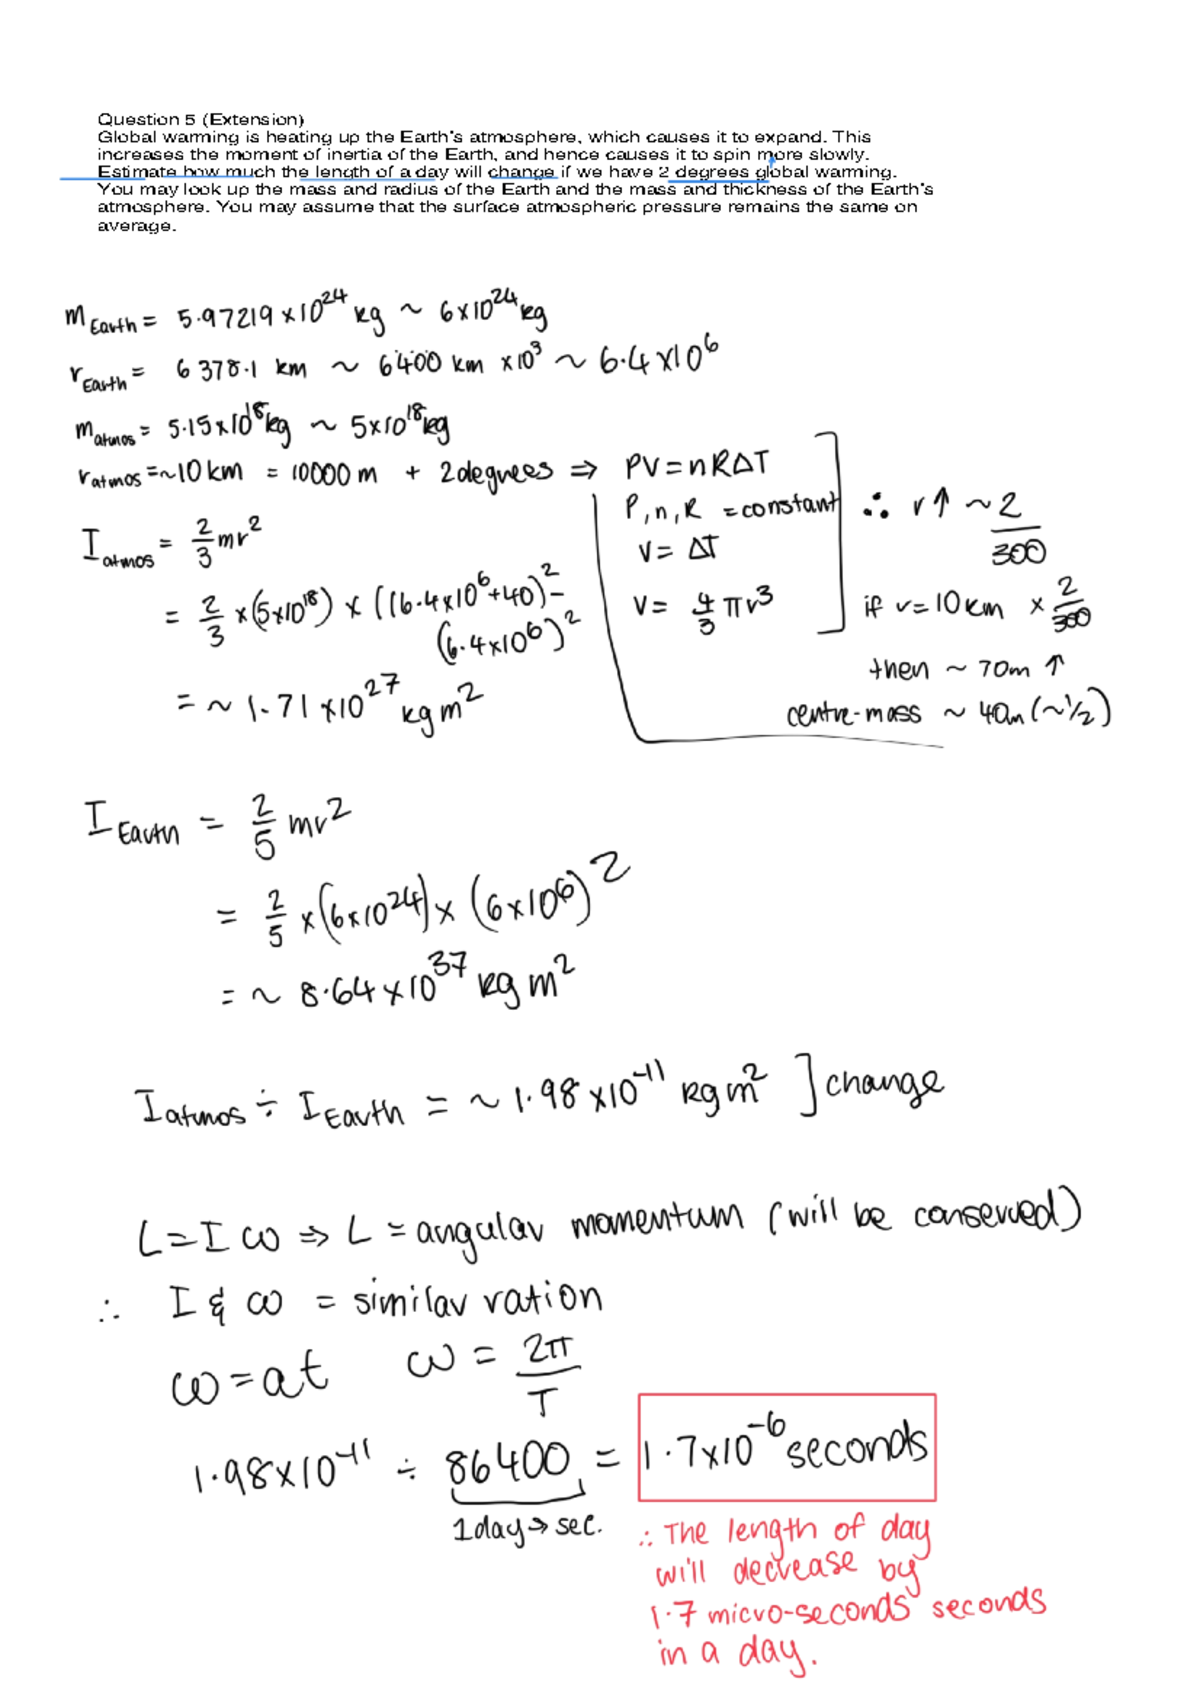 Question 5 (Extension)
Global warming is heating up the Earth's atmosphere, which causes it to expand. This
increases the moment of inertia of the Earth, and hence causes it to spin more slowly.
Estimate how much the length of a day will change if we have 2 degrees global warming.
You may look up the mass and radius of the Earth and the mass and thickness of the Earth's
atmosphere. You may assume that the surface atmospheric pressure remains the same on
average.
m Earth = 5.97219 x10^24 kg ~ 6x10^24 kg
r Earth = 6 378.1 km ~ 6400 km x10^3 ~ 6.4 x10^6
m atmos = 5.15x10^18 kg ~ 5x10^18 kg
r atmos =~10 km = 10000 m + 2 degrees ⇒ PV = nRΔT
P, n, R = constant
V = ΔT
V = 4/3 πr^3
∴ r↑ ~ 2/300
if r = 10 km x 2/300
then ~ 70m ↑
centre-mass ~ 40m (~1/2)
I atmos = 2/3 mr^2
= 2/3 x (5x10^18) x ((6.4x10^6+40)^2 -
(6.4x10^6)^2
= ~ 1.71 x10^27 kg m^2
I Earth = 2/5 mr^2
= 2/5 x (6x10^24) x (6x10^6)^2
= ~ 8.64 x10^37 kg m^2
I atmos ÷ I Earth = ~ 1.98 x10^-11 kg m^2 ] change
L = I ω ⇒ L = angular momentum (will be conserved)
∴ I & ω = similar ration
ω = at ω = 2π/T
1.98x10^-11 ÷ 86400 = 1.7x10^-6 seconds
1 day → sec.
∴ The length of day
will decrease by
1.7 micro-seconds seconds
in a day.